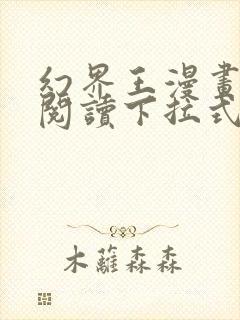 幻界王漫畫
閱讀下拉式
木蘿森森